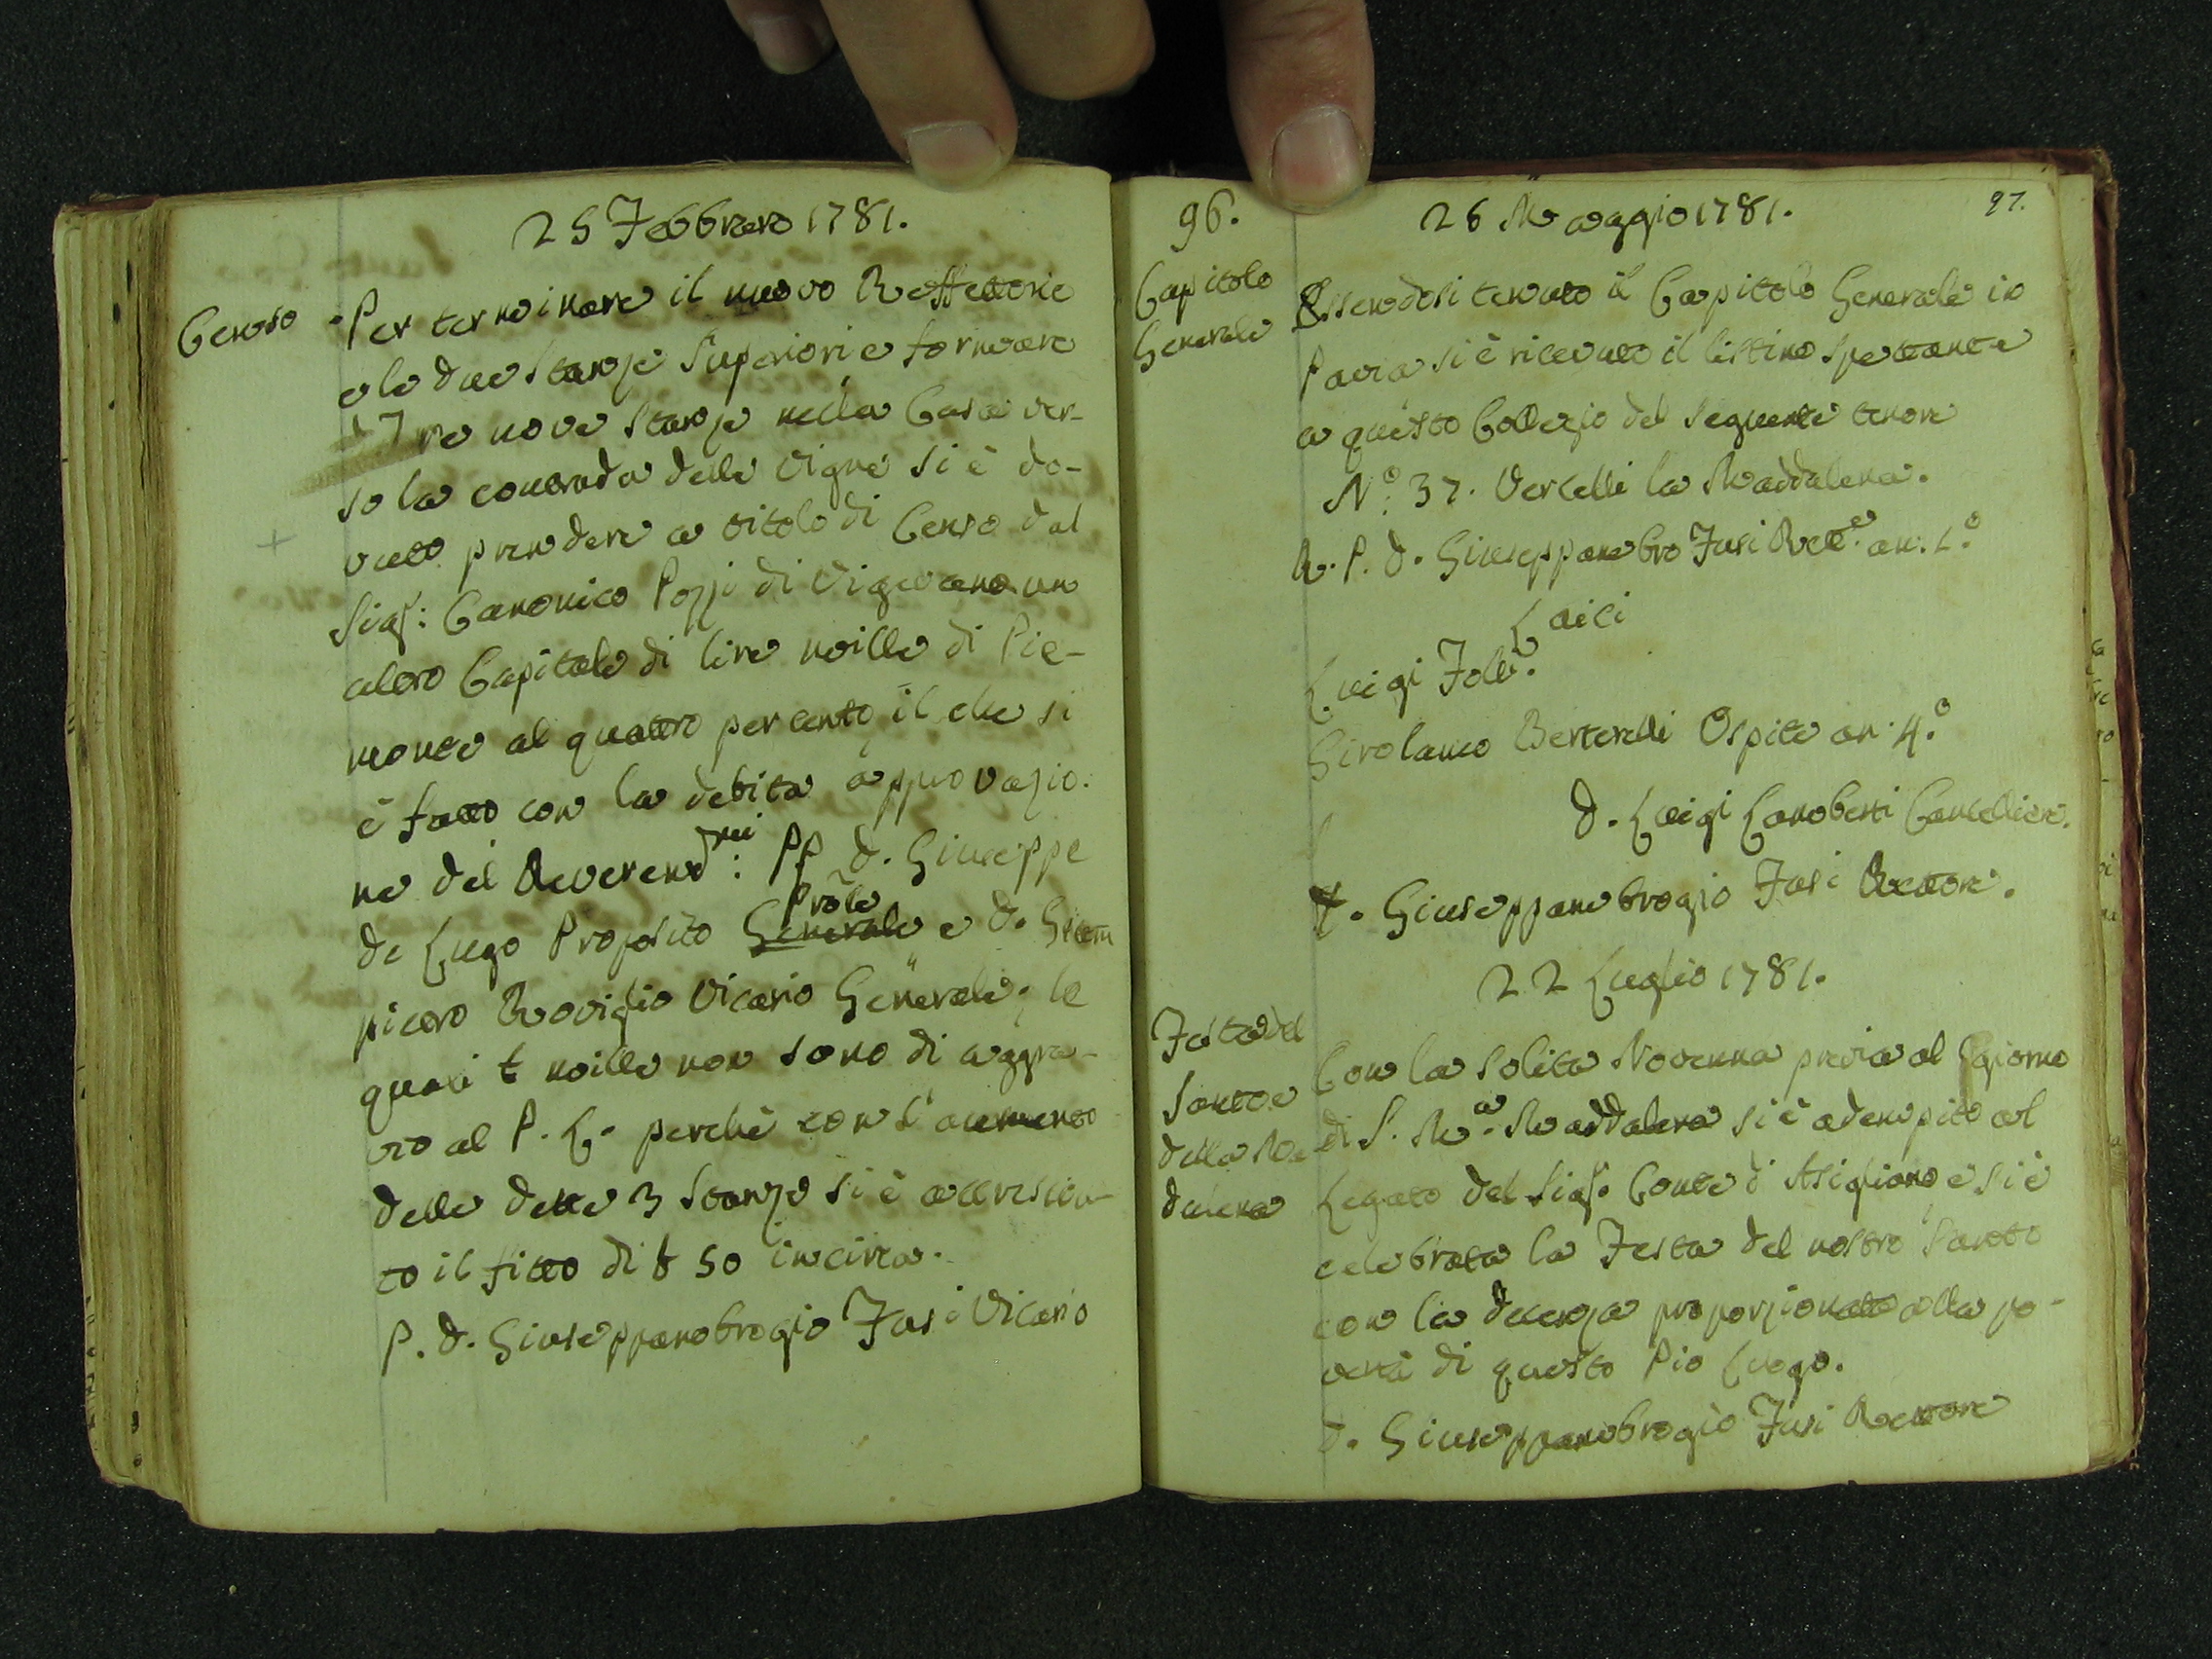 25 Febbraro 1781.
Censo
Per terminare il nuovo Reffettorio
e le due Stanze Superiori e formare
tre nove Stanze nella Casa ver-
so la contrada delle Vigne si è do-
vuto prendere a titolo di Censo dal
Sigʳ: Canonico Pozzi di Vigevano un
altro Capitale di lire mille di Pie-
monte al quattro per cento, il che si
è fatto con la debita approvazio.
ne del Reverendᵐⁱ: PP. D. Giuseppe
de Lugo Proposito Prõle e D. Giam
picero Roviglio Vicario Generale; le
quali £ mille non sono di aggra-
vio al P. L. perchè con l'aumento
delle dette 3 Stanze si è accresciu-
to il fitto di £ 50 incirca.
P. D. Giuseppambrogio Fusi Vicario
96.
26 Maggio 1781.
97.
Capitolo
Generale
Essendosi tenuto il Capitolo Generale in
Pavia si è ricevuto il listino spettante
a questo Collegio del seguente tenore
Nº: 37. Vercelli la Maddalena.
R. P. D. Giuseppambro Fusi Rettᵉ. an. 1.º
Laici
Luigi Folli.
Girolamo Berterelli Ospite an. 4.º
D. Luigi Lamberti Cancelliere.
D. Giuseppambrogio Fusi Rettore.
22 Luglio 1781.
Festa del
Santo e
della Ma
dalena
Con la solita Novenna previa al giorno
di S. Mᵃ. Maddalena si è adempito al
Legato del Sigʳ. Conte d'Asigliano e si è
celebrata la Festa del nostro Santo
con la decenza proporzionata alla po-
vertà di questo Pio Luogo.
D. Giuseppambrogio Fusi Rettore